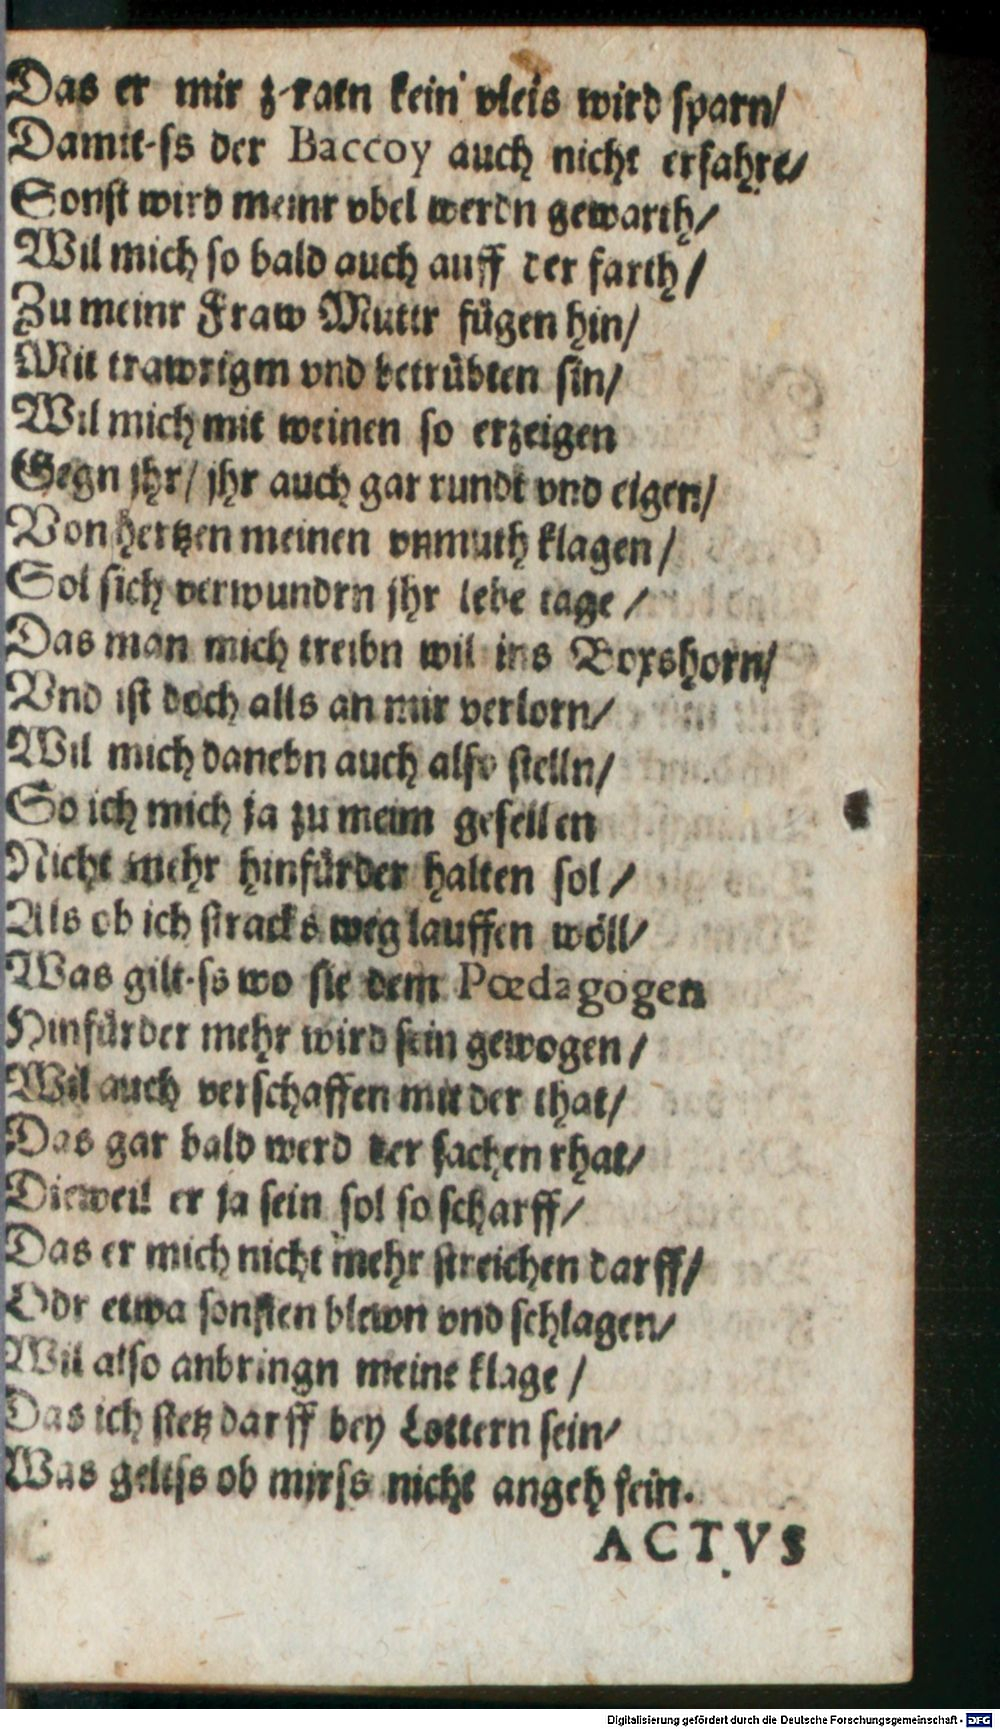 Das er mir z-raten kein vleis wird sparn/
Damit-ss der Baccoy auch nicht erfahre/
Sonst wird meinr vbel werdn gewarth/
Wil mich so bald auch auff der farth/
Zu meinr Fraw Muttr fügen hin/
Mit trawrigm vnd betrübten sin/
Wil mich mit weinen so erzeigen
Gegn jhr/ jhr auch gar rundt vnd eigen/
Von hertzen meinen vnmuth klagen/
Sol sich verwundrn jhr lebe tage/
Das man mich treibn wil ins Boxshorn/
Vnd ist doch alls an mir verlorn/
Wil mich danebn auch also stelln/
So ich mich ja zu meim gesellen
Nicht mehr hinfürder halten sol/
Als ob ich stracks weg lauffen wöll/
Was gilt-ss wo sie dem Pœdagogen
Hinfürder mehr wird sein gewogen/
Wil auch verschaffen mit der that/
Das gar bald werd der sachen rhat/
Dieweil er ja sein sol so scharff/
Das er mich nicht mehr streichen darff/
Odr etwa sonsten blewn vnd schlagen/
Wil also anbringn meine klage/
Das ich stetz darff bey Lottern sein/
Was geltss ob mirss nicht angeh fein.
ACTVS
Digitalisierung gefördert durch die Deutsche Forschungsgemeinschaft - DFG